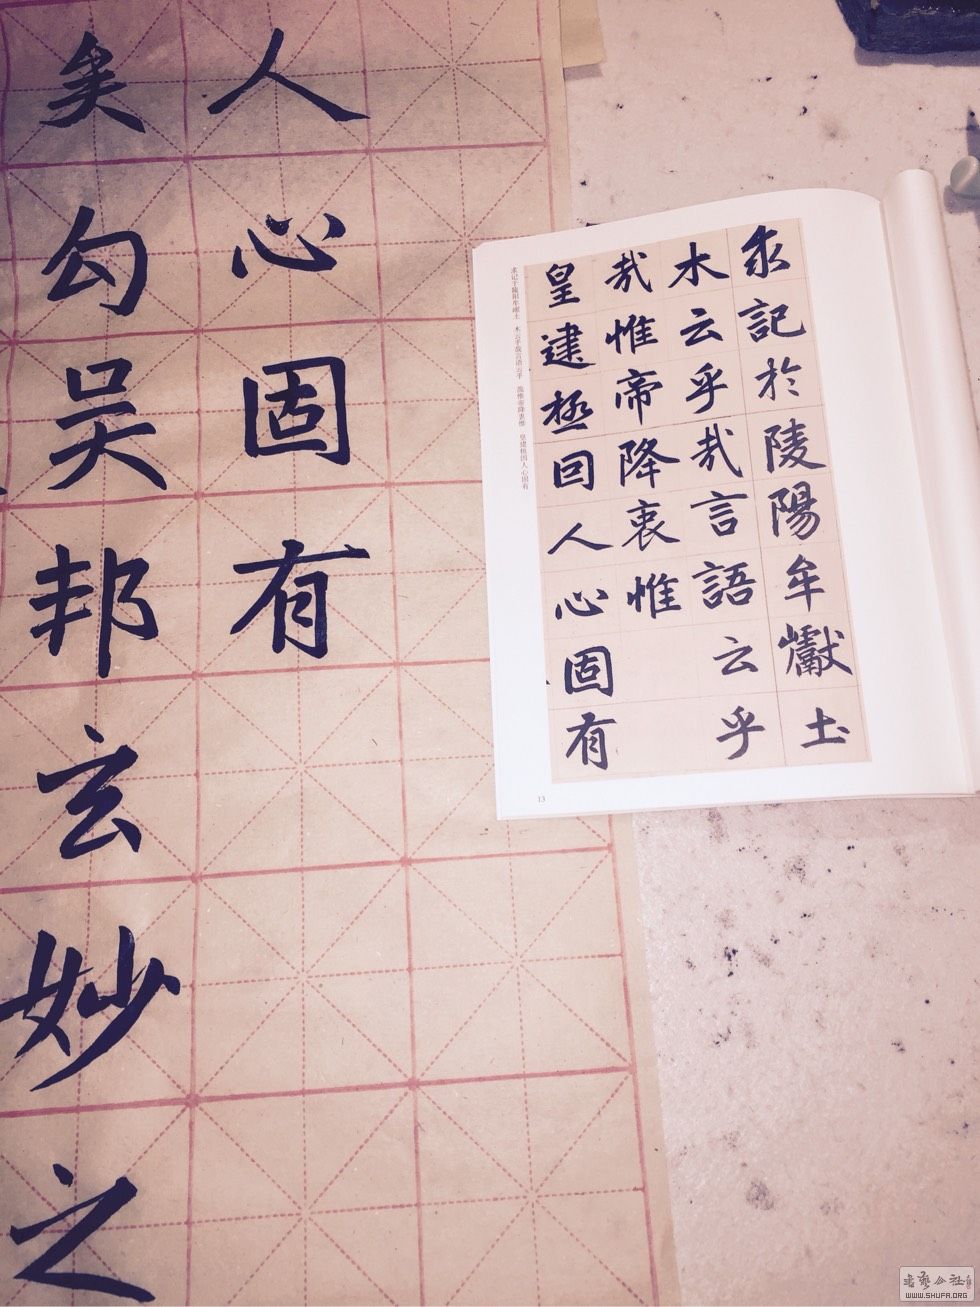 人心固有
矣勾吴邦玄妙之
求記於陵陽牟巘土
木云乎哉言語云乎
哉惟帝降衷惟
皇建極囙人心固有
求记于陵阳牟巘土 木云乎哉言语云乎 哉惟帝降衷惟 皇建极因人心固有
13
書藝公社
WWW.SHUFA.ORG